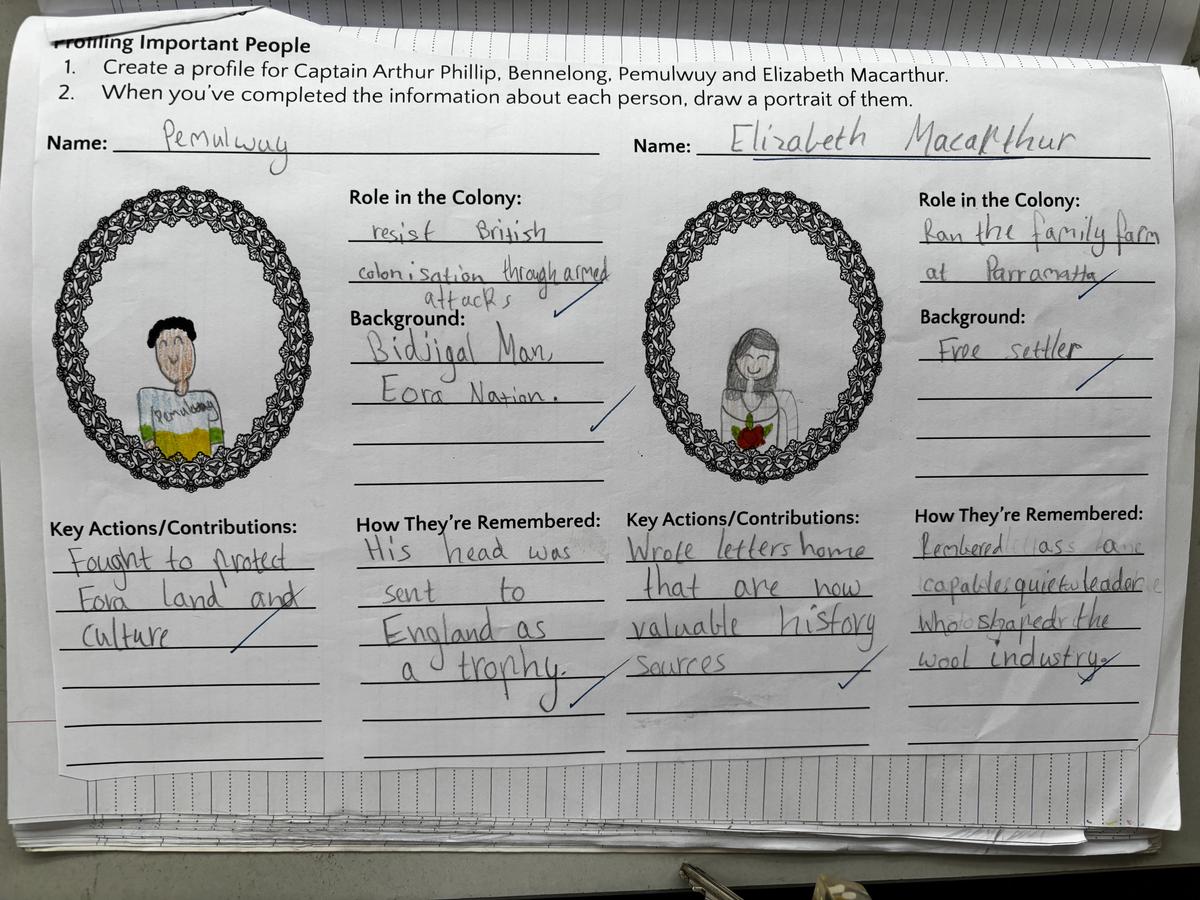 Profiling Important People
1. Create a profile for Captain Arthur Phillip, Bennelong, Pemulwuy and Elizabeth Macarthur.
2. When you've completed the information about each person, draw a portrait of them.
Name: Pemulwuy
Role in the Colony:
resist British
colonisation through armed
attacks
Background:
Bidjigal Man,
Eora Nation.
Pemulwuy
Key Actions/Contributions:
Fought to protect
Eora land and
culture
How They're Remembered:
His head was
sent to
England as
a trophy.
Name: Elizabeth Macarthur
Role in the Colony:
Ran the family farm
at Parramatta
Background:
Free settler
Key Actions/Contributions:
Wrote letters home
that are now
valuable history
sources
How They're Remembered:
Rembered ass a
capable quiet leader
who shaped the
wool industry.